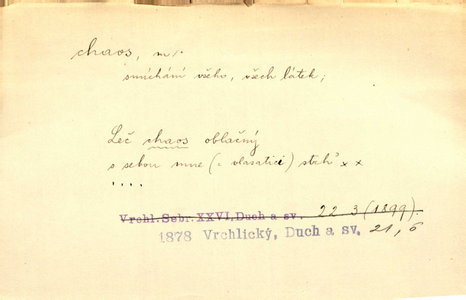 chaos, m.
smíchání všeho, všech látek;
Leč chaos oblačný
s sebou mne (: vlasatici) strh' x x
....
Vrchl. Sebr. XXVI. Duch a sv. 22 3 (1899).
1878 Vrchlický, Duch a sv. 21, 6